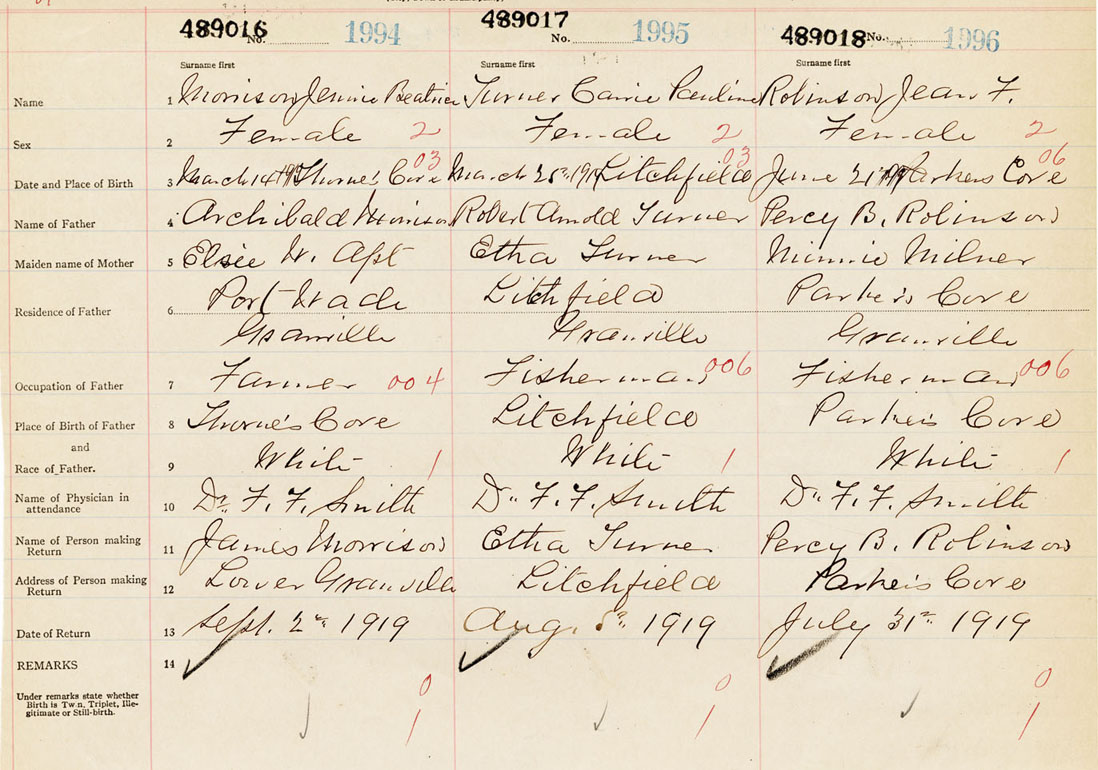 489016 No. 1994 489017 No. 1995 489018 No. 1996
Surname first Surname first Surname first
Name 1 Morrison Jennie Beatrice Turner Carrie Pauline Robinson, Jean F.
Sex 2 Female 2 Female 2 Female 2
03 03 06
Date and Place of Birth 3 March 14 Thorne's Cove March 25 Litchfield June 21 Parkers Cove
Name of Father 4 Archibald Morrison Robert Arnold Turner Percy B. Robinson
Maiden name of Mother 5 Elsie W. Apt Etha Turner Minnie Milner
Residence of Father 6 Port Wade Litchfield Parker's Cove
Granville Granville Granville
Occupation of Father 7 Farmer 004 Fisherman 006 Fisherman 006
Place of Birth of Father 8 Thorne's Cove Litchfield Parker's Cove
and
Race of Father. 9 White 1 White 1 White 1
Name of Physician in attendance 10 Dr. F. F. Smith Dr. F. F. Smith Dr. F. F. Smith
Name of Person making Return 11 James Morrison Etha Turner Percy B. Robinson
Address of Person making Return 12 Lower Granville Litchfield Parker's Cove
Date of Return 13 Sept. 2nd 1919 Aug. 1919 July 31st 1919
REMARKS 14
Under remarks state whether
Birth is Twin, Triplet, Ille-
gitimate or Still-birth.
0 0 0
1 1 1